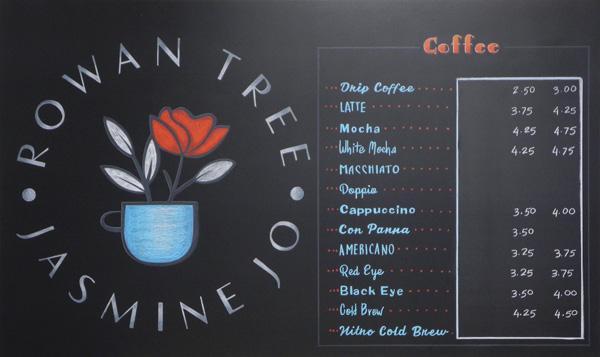 ROWAN TREE
JASMINE JO
Coffee
Drip Coffee 2.50 3.00
LATTE 3.75 4.25
Mocha 4.25 4.75
White Mocha 4.25 4.75
MACCHIATO
Doppio
Cappuccino 3.50 4.00
Con Panna 3.50
AMERICANO 3.25 3.75
Red Eye 3.25 3.75
Black Eye 3.50 4.00
Cold Brew 4.25 4.50
Nitro Cold Brew